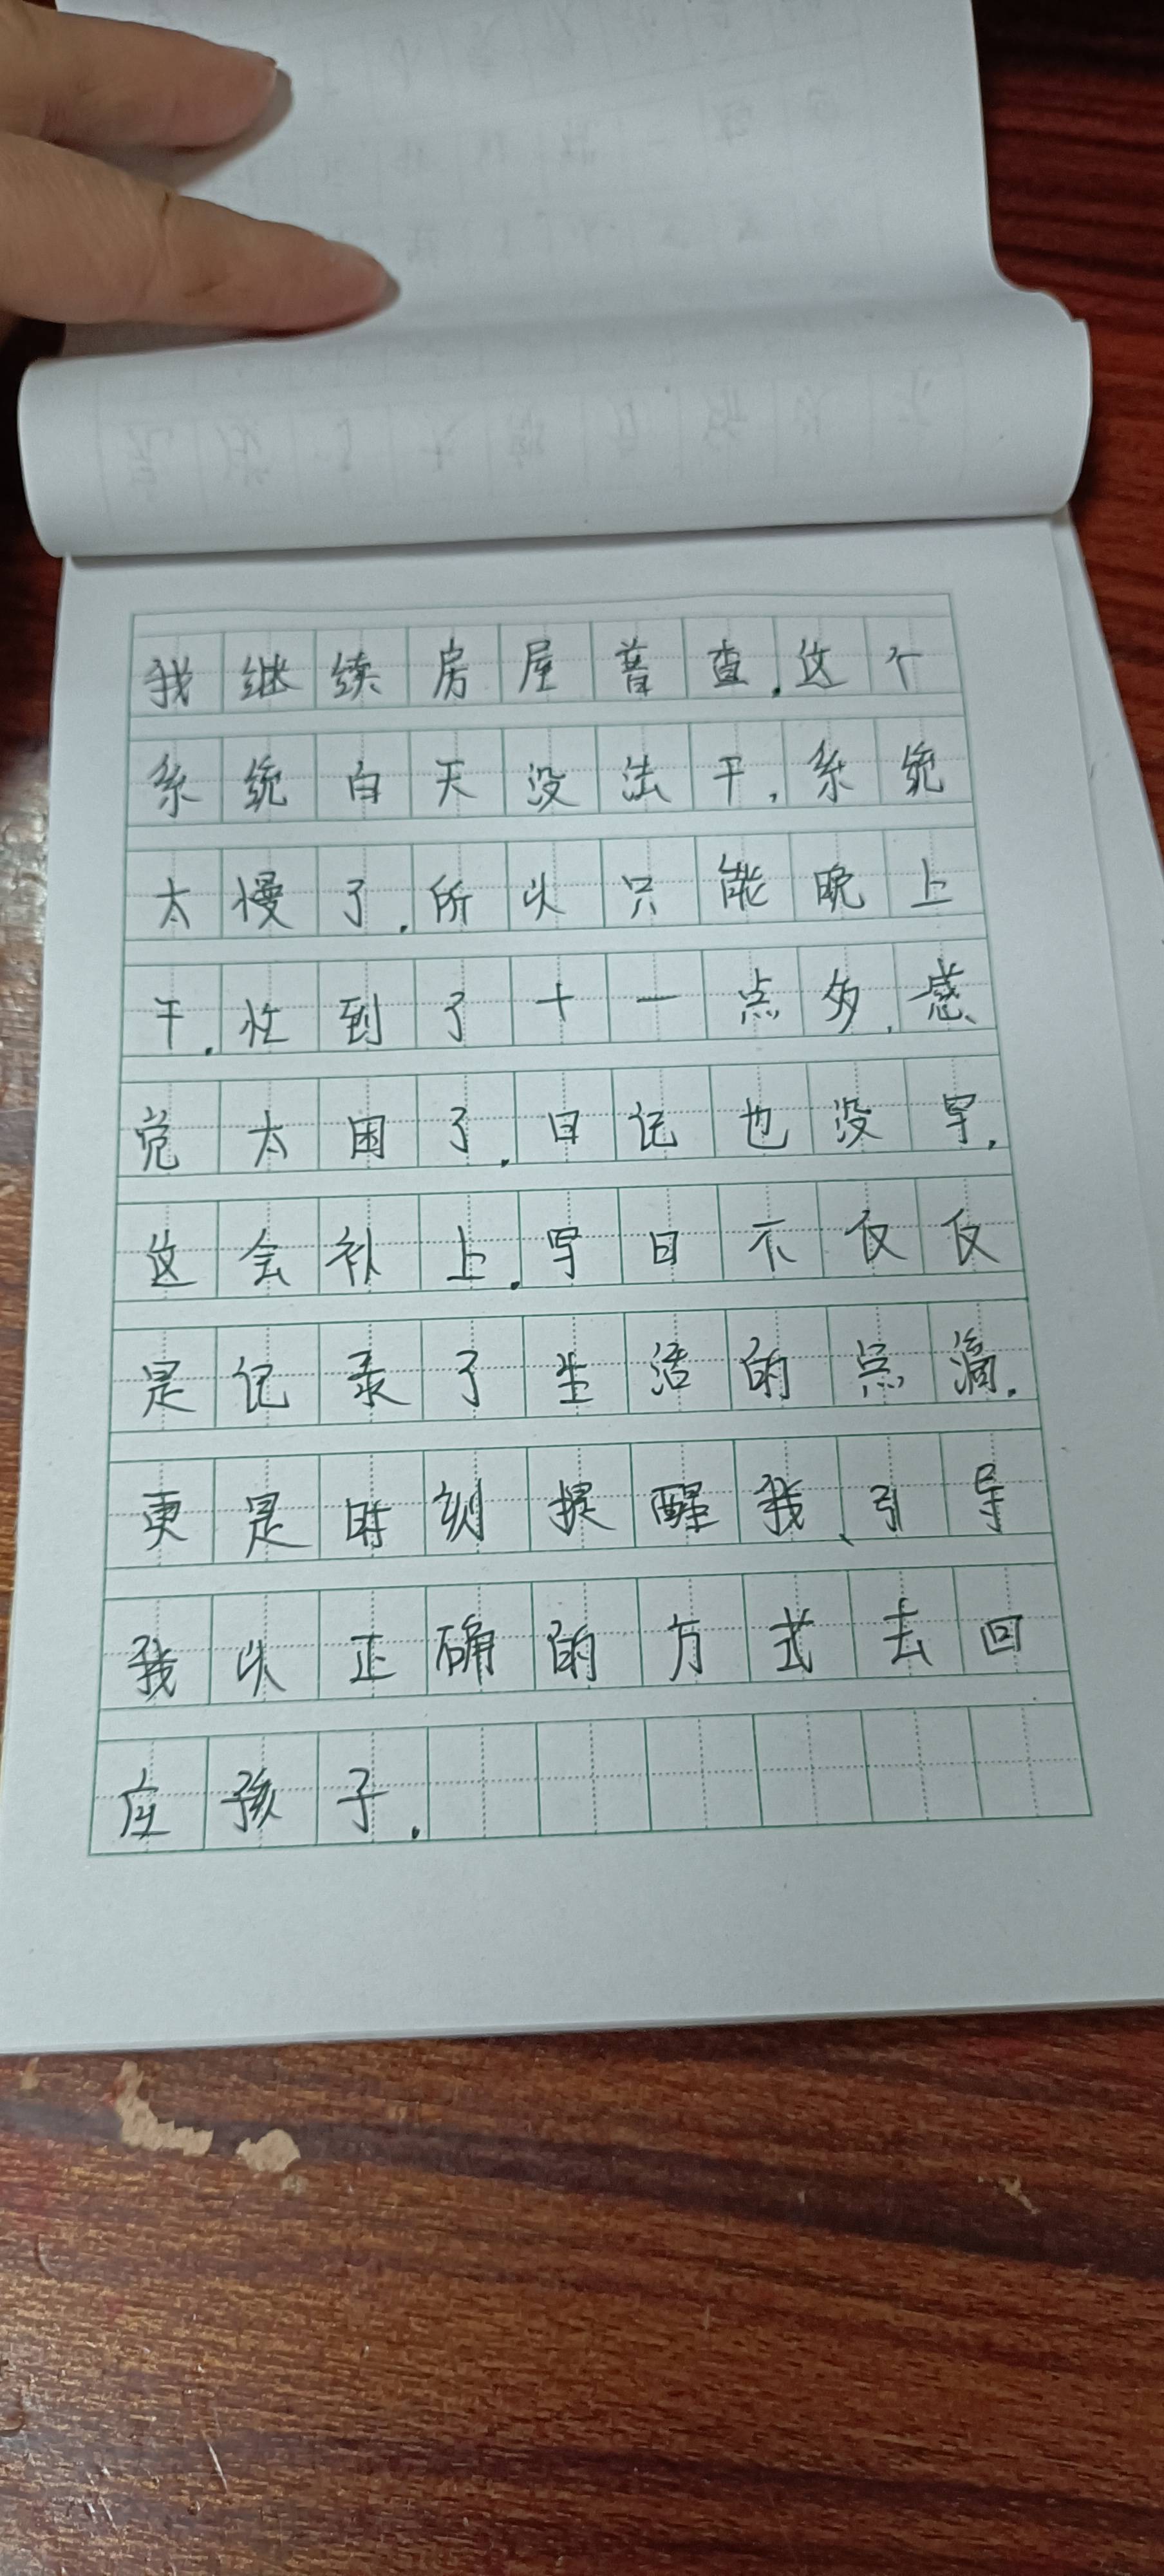 我继续房屋普查.这个
系统白天没法干,系统
太慢了.所以只能晚上
干.忙到了十一点多,感
觉太困了.日记也没写.
这会补上.写日不仅仅
是记录了生活的点滴.
更是时刻提醒我、引导
我以正确的方式去回
应孩子.